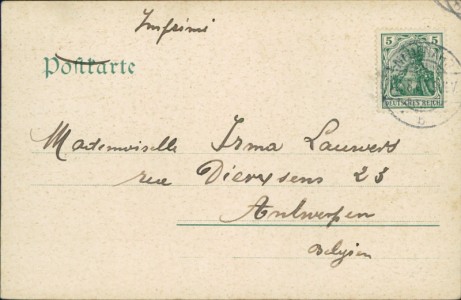 Imprimé
Postkarte
5 5
DEUTSCHES REICH
b
Mademoiselle Irma Lauwers
rue Diercxsens 23
Antwerpen
Belgien